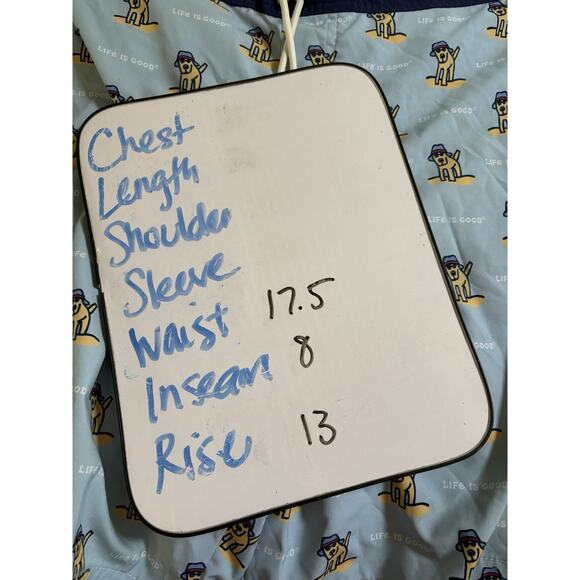 LIFE IS GOOD®
LIFE IS GOOD®
LIFE IS GOOD
Chest
Length
Shoulder
Sleeve
Waist 17.5
Inseam 8
Rise 13
LIFE IS GOOD®
LIFE IS GOOD®
LIFE IS GOOD
LIFE IS GOOD
LIFE IS GOOD